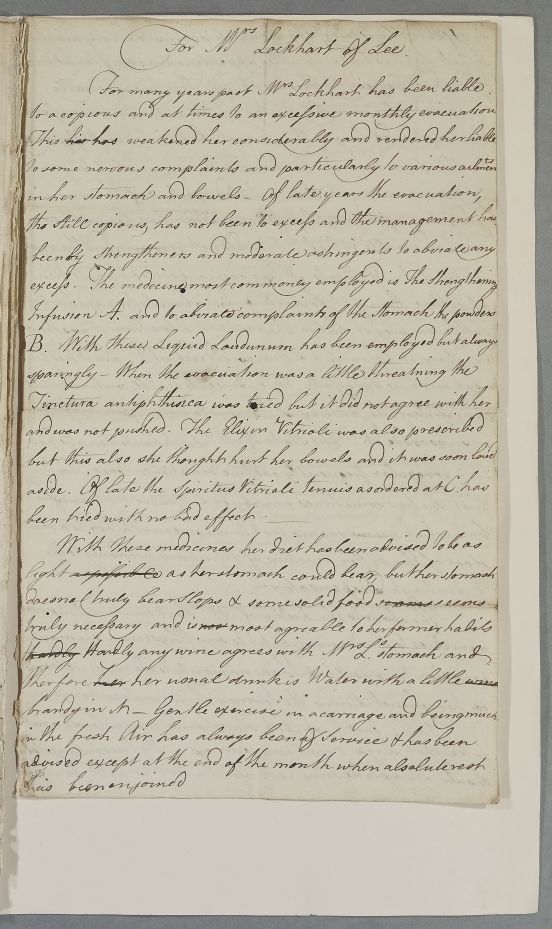 For Mrs Lockhart of Lee.
For many years past Mrs Lockhart has been liable
to a copious and at times to an excessive monthly evacuation
This his has weakened her considerably and rendered her liable
to some nervous complaints and particularly to various ailments
in her stomach and bowels – Of late years the evacuation,
tho still copious, has not been to excess and the management has
been by strengtheners and moderate adstringents to obviate any
excess. The medecine most commonly employed is The Strengthening
Infusion A. and to obviate complaints of the Stomach the powders
B. With these Liquid Laudunum has been employed but always
sparingly – When the evacuation was a little threatning the
Tinctura antiphthisica was tried but it did not agree with her
and was not pushed. The Elixir Vitrioli was also prescribed
but this also she thought hurt her bowels and it was soon laid
aside. Of late the Spiritus Vitrioli tenuis as ordered at C. has
been tried with no bad effect.
With these medicines her diet has been advised to be as
light as possible as her stomach could bear, but her stomach
does not truly bear Slops & some solid food seems seems
truly necessary and is now most agreable to her former habits
hardly Hardly any wine agrees with Mrs L's stomach and
therfore her her usual drink is Water with a little
brandy in it – Gentle exercise in a carriage and being much
in the fresh Air has always been of Service & has been
advised except at the end of the month when absolute rest
has been enjoined